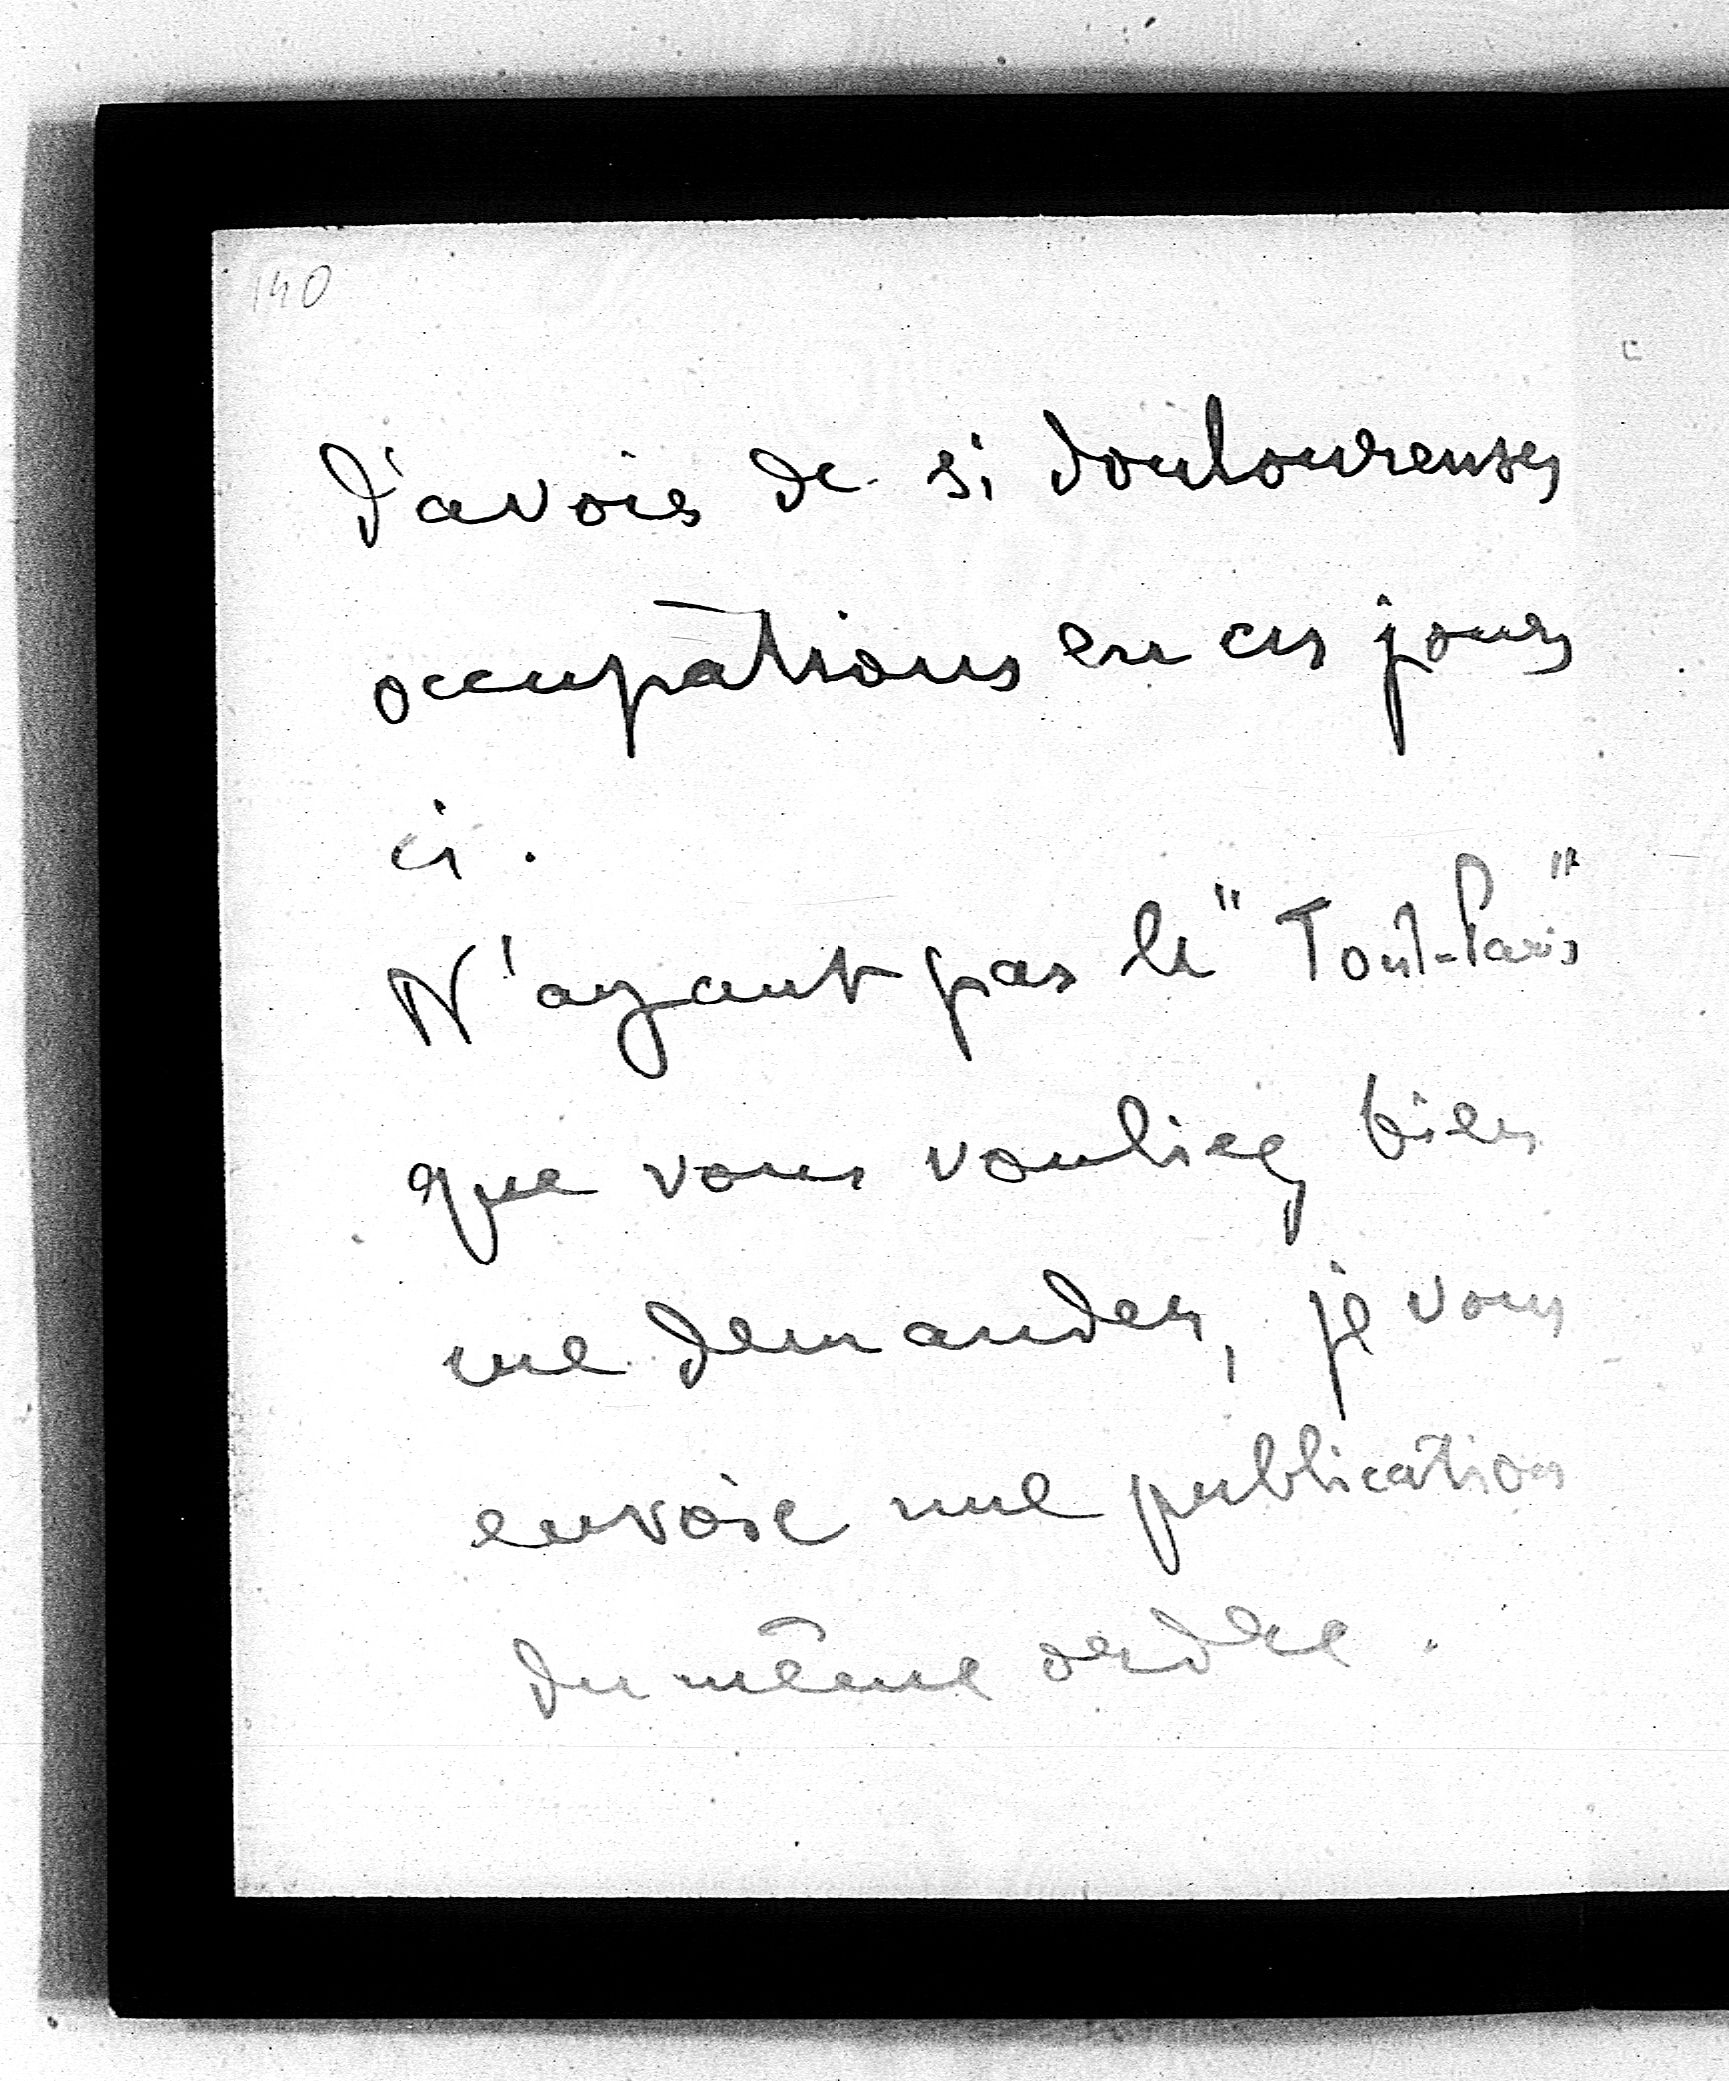 140
J'avois de si douloureuses
occupations en ces jours
ci.
N'ayant pas le "Tout-Paris"
que vous vouliez bien
me demander, je vous
envoie une publication
du même ordre.